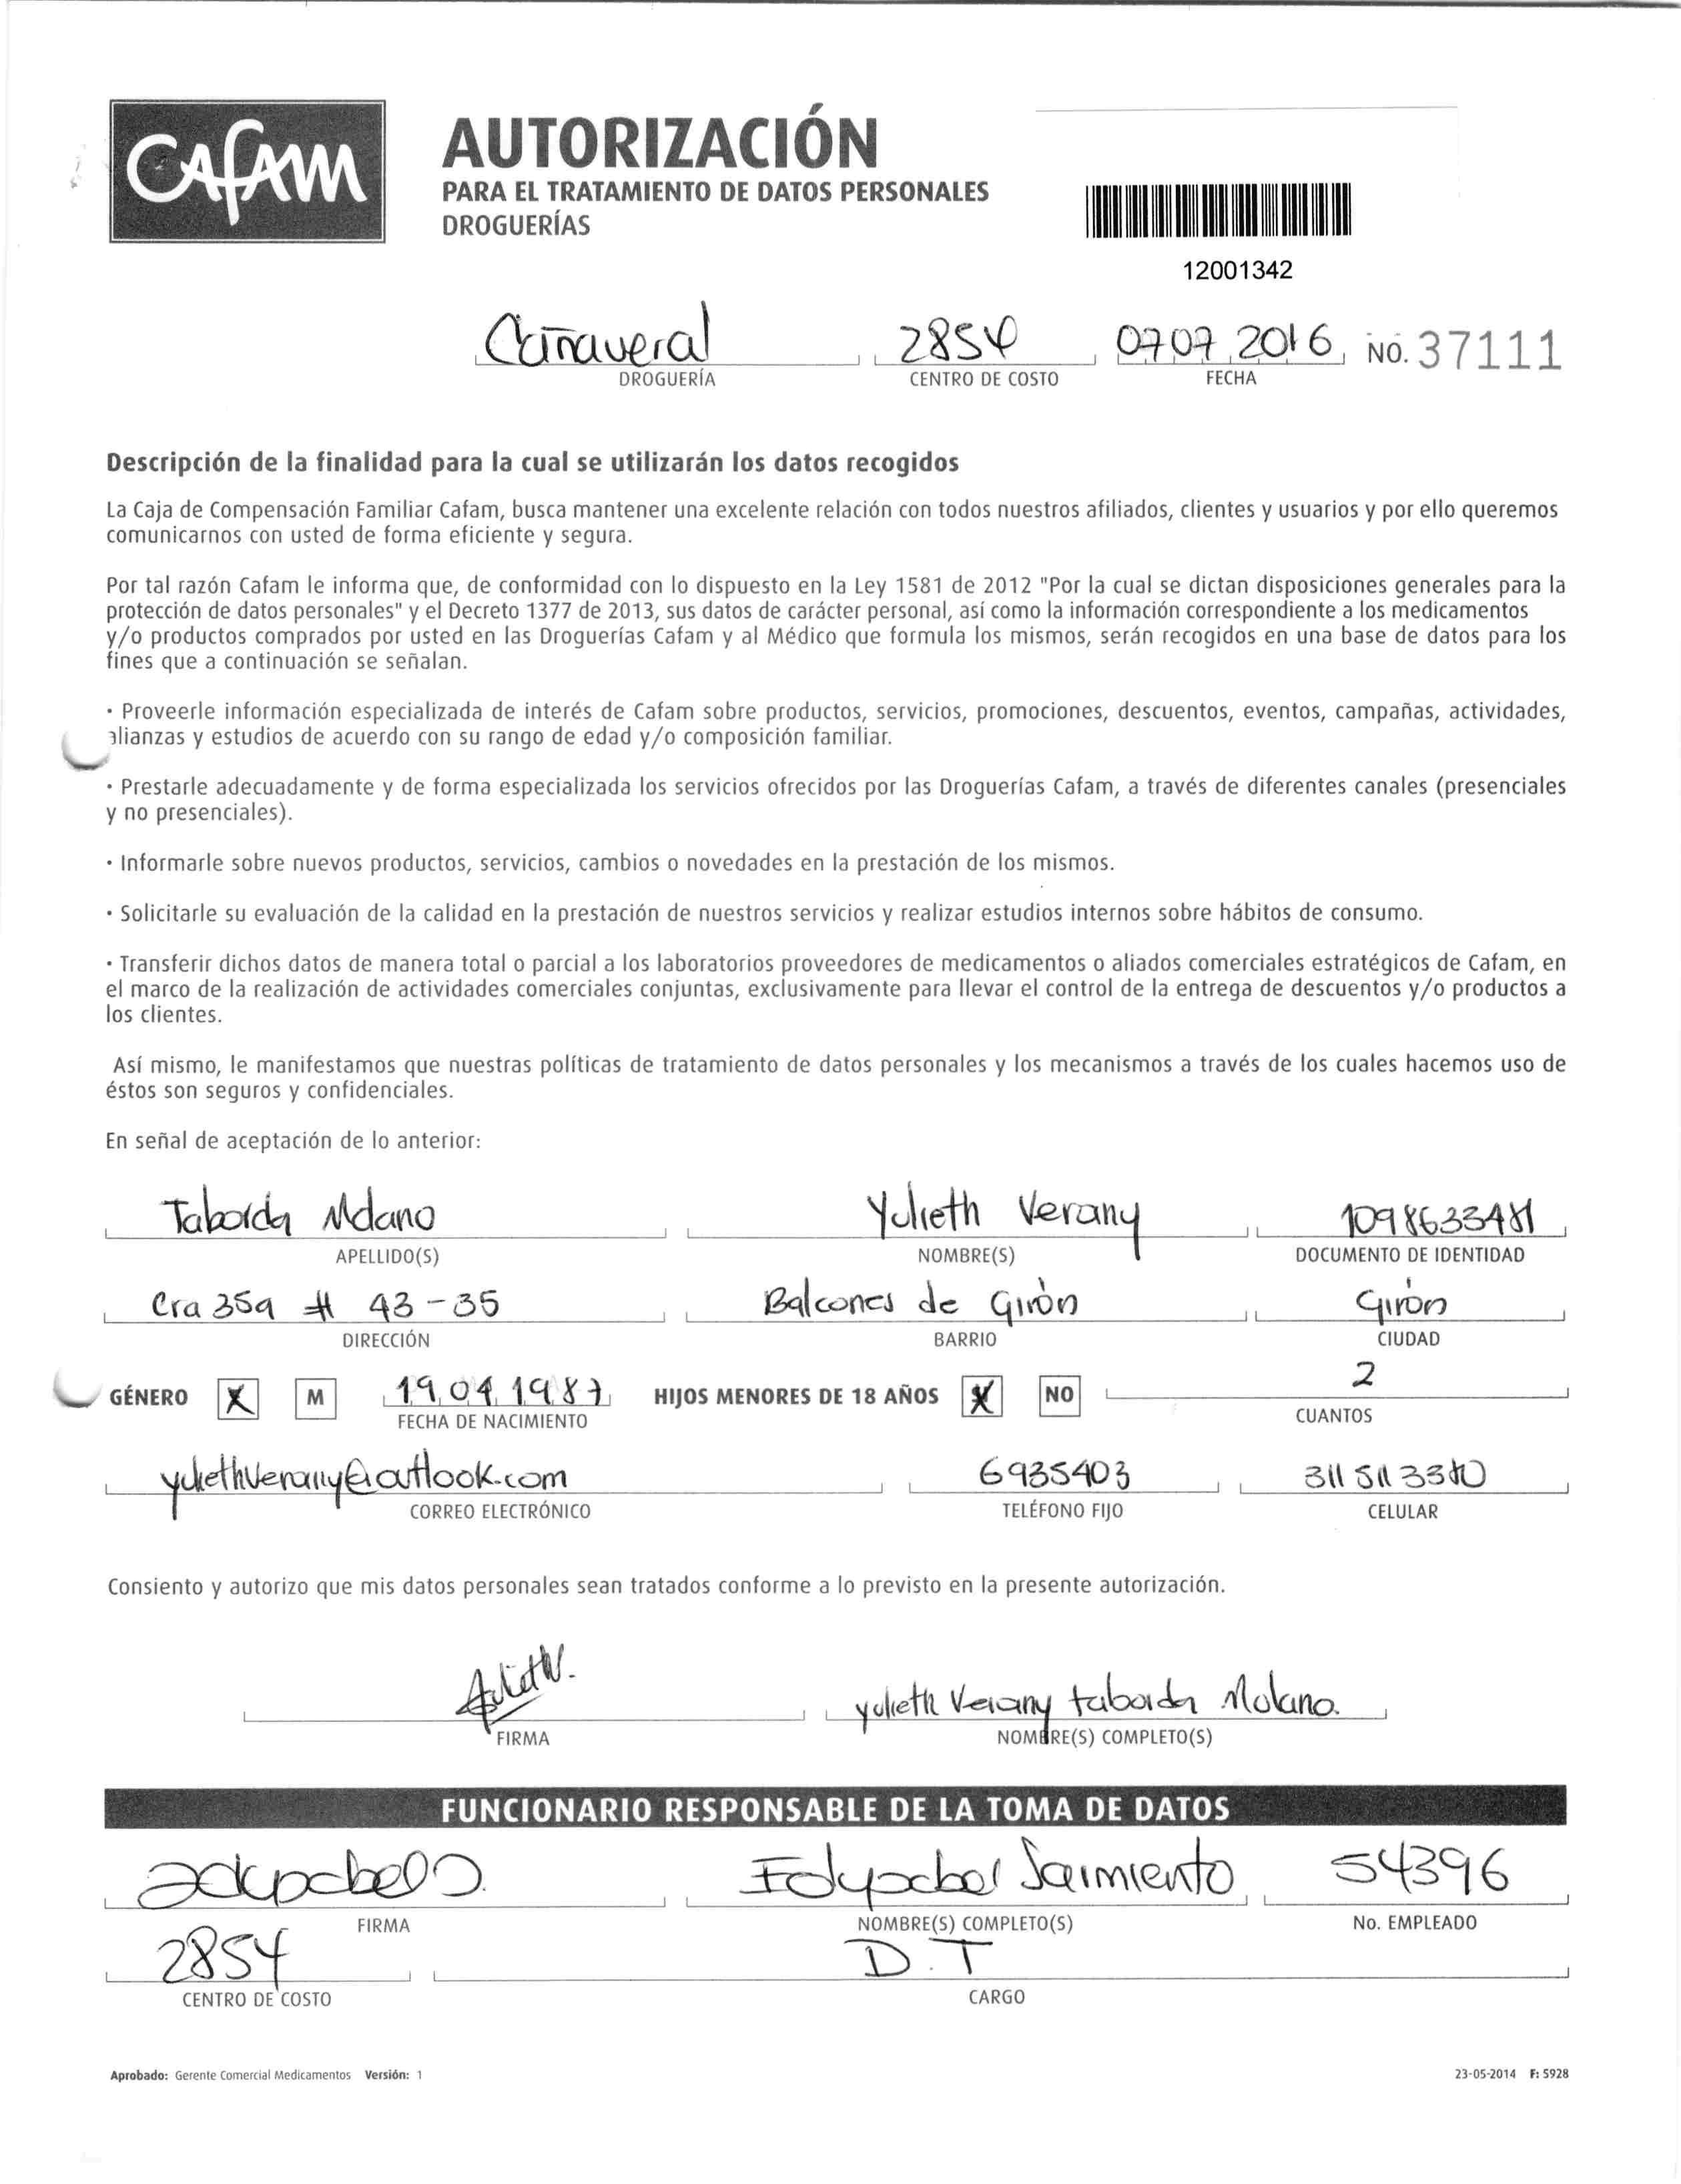 Cafam
AUTORIZACIÓN
PARA EL TRATAMIENTO DE DATOS PERSONALES
DROGUERÍAS
12001342
Cañaveral 2854 07 07 2016 No. 37111
DROGUERÍA CENTRO DE COSTO FECHA
Descripción de la finalidad para la cual se utilizarán los datos recogidos
La Caja de Compensación Familiar Cafam, busca mantener una excelente relación con todos nuestros afiliados, clientes y usuarios y por ello queremos
comunicarnos con usted de forma eficiente y segura.
Por tal razón Cafam le informa que, de conformidad con lo dispuesto en la Ley 1581 de 2012 "Por la cual se dictan disposiciones generales para la
protección de datos personales" y el Decreto 1377 de 2013, sus datos de carácter personal, así como la información correspondiente a los medicamentos
y/o productos comprados por usted en las Droguerías Cafam y al Médico que formula los mismos, serán recogidos en una base de datos para los
fines que a continuación se señalan.
· Proveerle información especializada de interés de Cafam sobre productos, servicios, promociones, descuentos, eventos, campañas, actividades,
alianzas y estudios de acuerdo con su rango de edad y/o composición familiar.
· Prestarle adecuadamente y de forma especializada los servicios ofrecidos por las Droguerías Cafam, a través de diferentes canales (presenciales
y no presenciales).
· Informarle sobre nuevos productos, servicios, cambios o novedades en la prestación de los mismos.
· Solicitarle su evaluación de la calidad en la prestación de nuestros servicios y realizar estudios internos sobre hábitos de consumo.
· Transferir dichos datos de manera total o parcial a los laboratorios proveedores de medicamentos o aliados comerciales estratégicos de Cafam, en
el marco de la realización de actividades comerciales conjuntas, exclusivamente para llevar el control de la entrega de descuentos y/o productos a
los clientes.
Así mismo, le manifestamos que nuestras políticas de tratamiento de datos personales y los mecanismos a través de los cuales hacemos uso de
éstos son seguros y confidenciales.
En señal de aceptación de lo anterior:
Taborda Molano Yulieth Verany
APELLIDO(S) NOMBRE(S) DOCUMENTO DE IDENTIDAD
Cra 35a # 43-35 Balcones de Girón Girón
DIRECCIÓN BARRIO CIUDAD
GÉNERO X M 19 04 1987 HIJOS MENORES DE 18 AÑOS X NO 2
FECHA DE NACIMIENTO CUANTOS
yuliethverany@outlook.com 6935403
CORREO ELECTRÓNICO TELÉFONO FIJO CELULAR
Consiento y autorizo que mis datos personales sean tratados conforme a lo previsto en la presente autorización.
yulieth Verany taborda Molano.
FIRMA NOMBRE(S) COMPLETO(S)
FUNCIONARIO RESPONSABLE DE LA TOMA DE DATOS
Sarmiento 54396
FIRMA NOMBRE(S) COMPLETO(S) No. EMPLEADO
2854 D.T
CENTRO DE COSTO CARGO
Aprobado: Gerente Comercial Medicamentos Versión: 1 23-05-2014 F: 5928